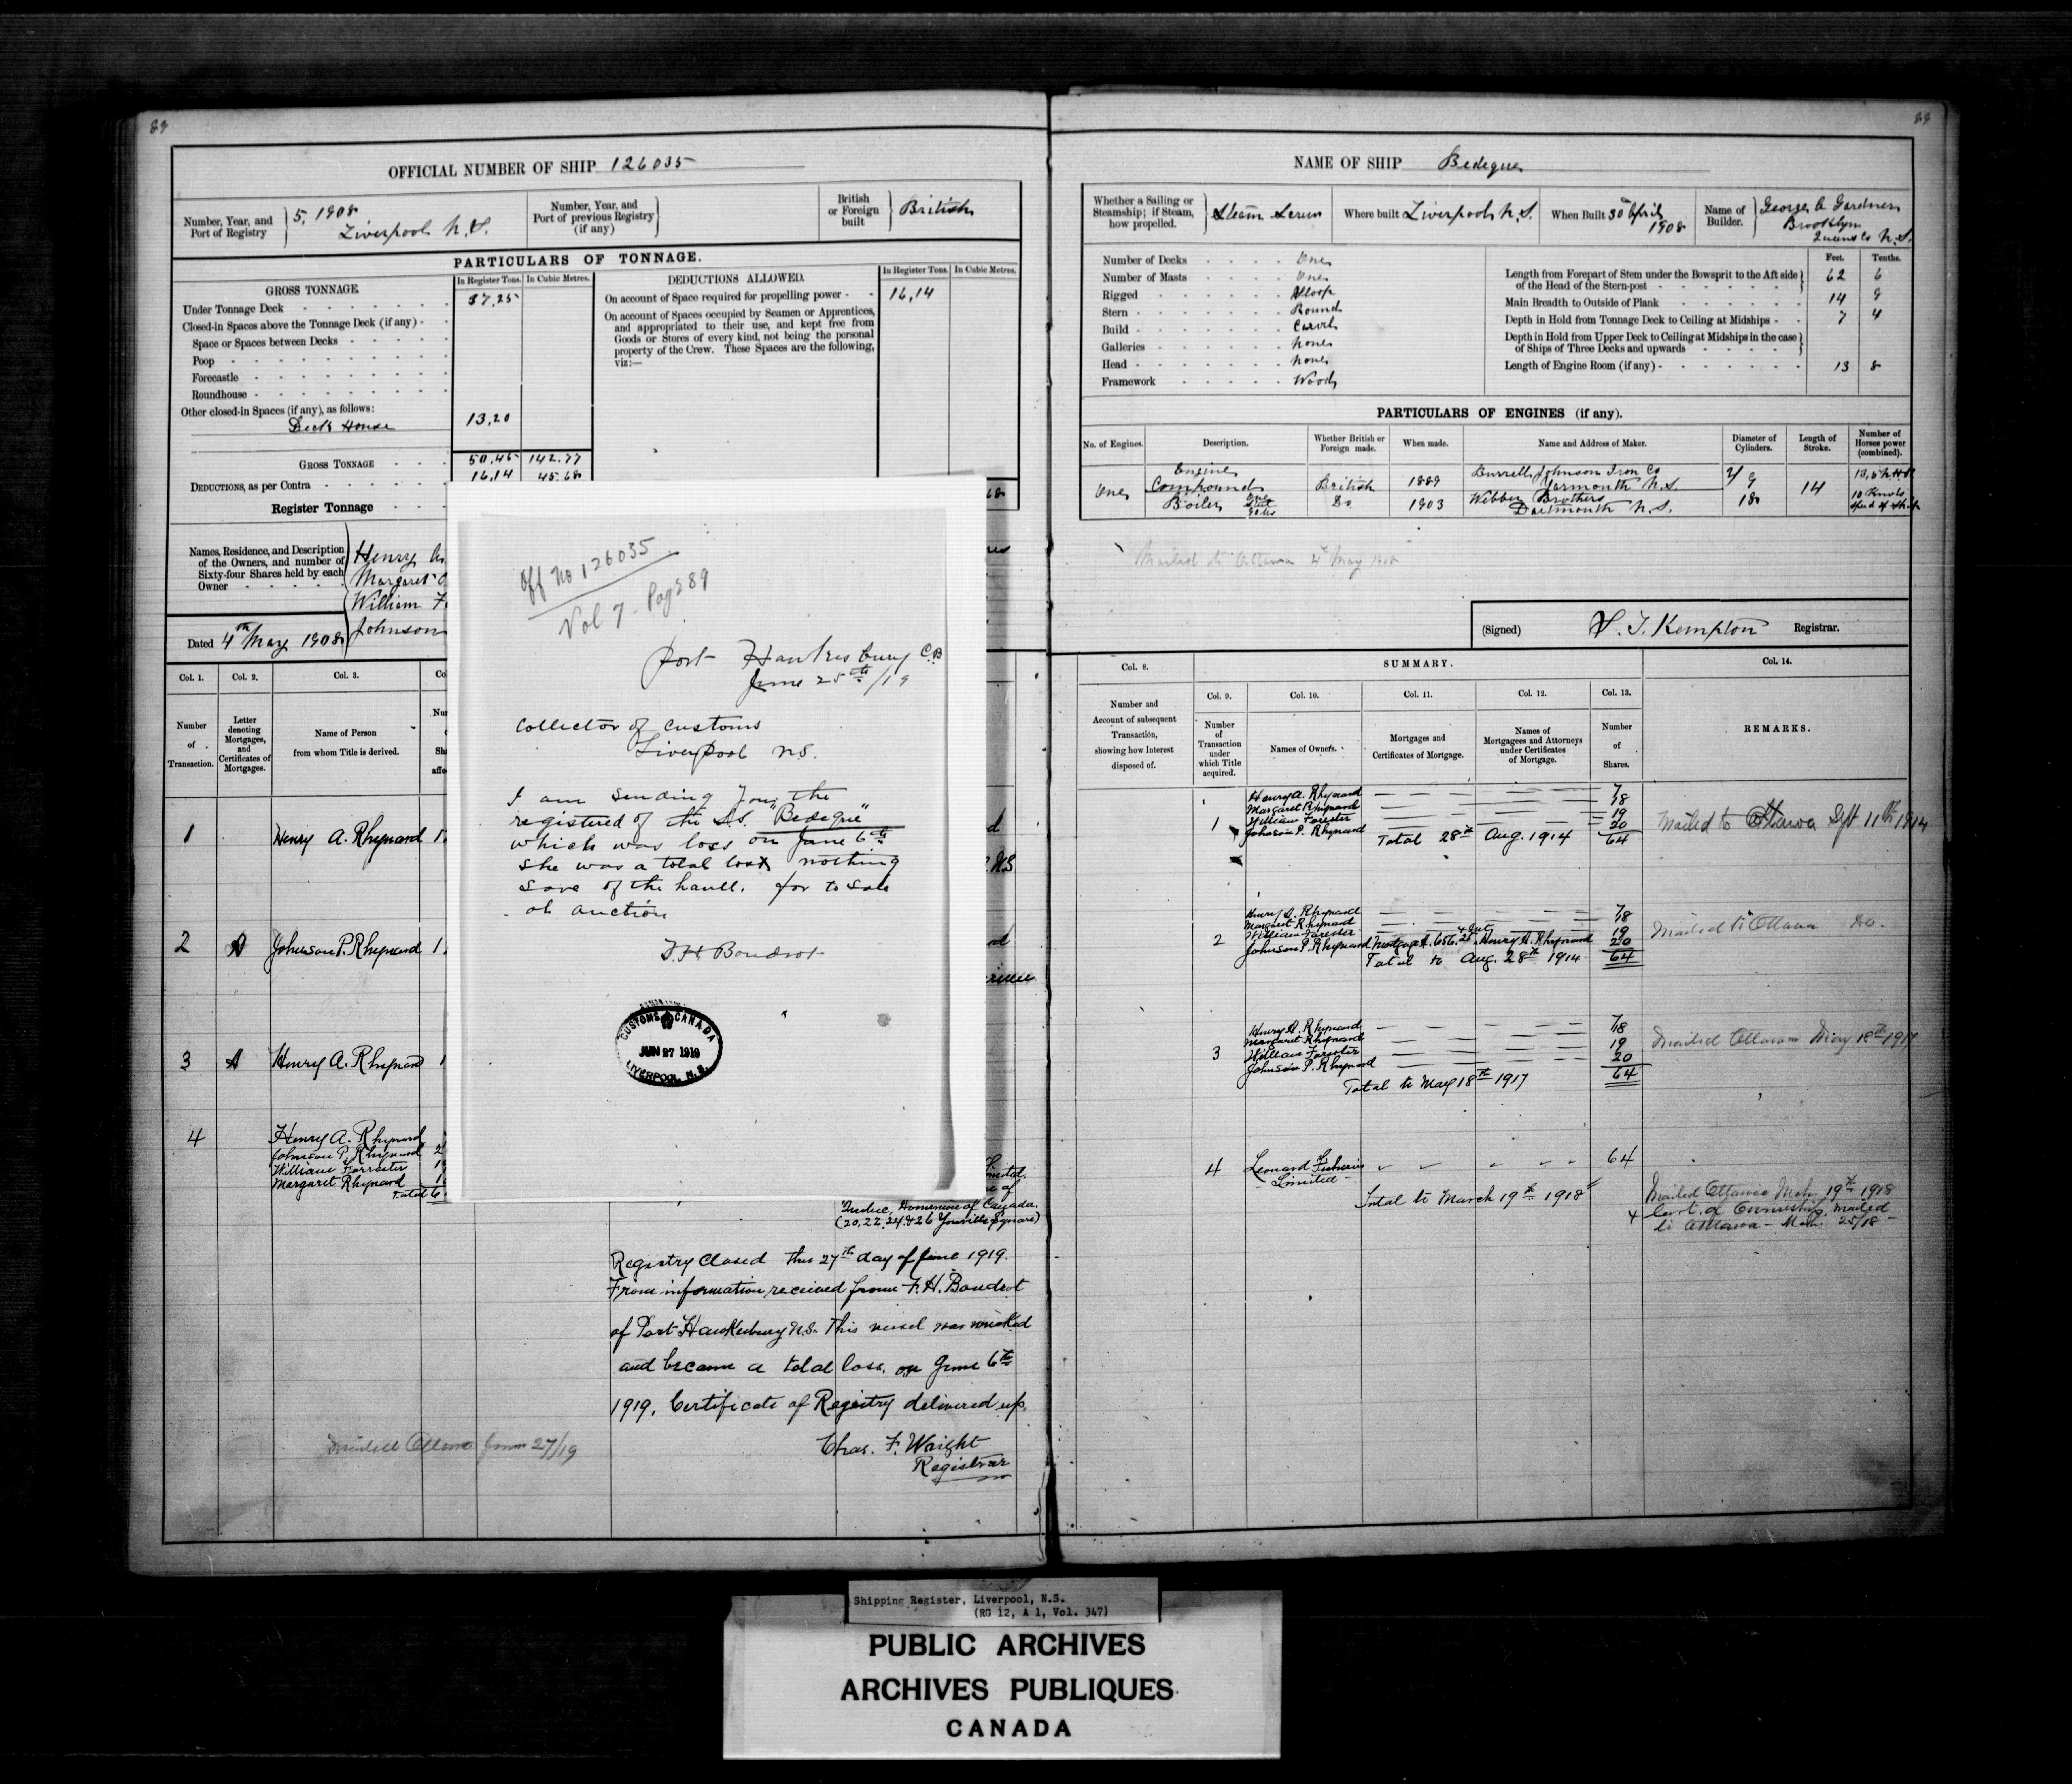 89
OFFICIAL NUMBER OF SHIP 126035
Number, Year, and
Port of Registry
5, 1908
Liverpool N.S.
Number, Year, and
Port of previous Registry
(if any)
British
or Foreign
built
British
PARTICULARS OF TONNAGE.
GROSS TONNAGE
In Register Tons. In Cubic Metres.
Under Tonnage Deck 37,25
Closed-in Spaces above the Tonnage Deck (if any)
Space or Spaces between Decks
Poop
Forecastle
Roundhouse
Other closed-in Spaces (if any), as follows:
Deck House 13,20
GROSS TONNAGE 50,45 142.77
DEDUCTIONS, as per Contra 16,14 45.68
Register Tonnage
DEDUCTIONS ALLOWED.
In Register Tons. In Cubic Metres.
On account of Space required for propelling power 16,14
On account of Spaces occupied by Seamen or Apprentices,
and appropriated to their use, and kept free from
Goods or Stores of every kind, not being the personal
property of the Crew. These Spaces are the following,
viz:—
Names, Residence, and Description
of the Owners, and number of
Sixty-four Shares held by each
Owner
Henry
Margaret
William F
Johnson
Dated 4th May 1908
Col. 1. Col. 2. Col. 3.
Number
of
Transaction.
Letter
denoting
Mortgages,
and
Certificates of
Mortgages.
Name of Person
from whom Title is derived.
1 Henry A. Rhynard
2 A Johnson P. Rhynard
3 A Henry A. Rhynard
4 Henry A. Rhynard
Johnson P. Rhynard
William Forrester
Margaret Rhynard
Total 6
Off No 126035
Vol 7 - Page 89
Port Hawkesbury C.B
June 25th /19
Collector of Customs
Liverpool N.S.
I am sending you the
registered of the S.S. "Bedeque"
which was loss on June 6th
she was a total lost nothing
save of the haull. for to sale
at auction
F.H. Boudrot
CUSTOMS CANADA
JUN 27 1919
LIVERPOOL, N. S.
Limited.
Quebec, Dominion of Canada.
(20, 22, 24, & 26 Youville Square)
Registry Closed this 27th day of June 1919.
From information received from F. H. Boudrot
of Port Hawkesbury N.S. This vessel was wrecked
and became a total loss, on June 6th
1919. Certificate of Registry delivered up.
Chas. F. Wright
Registrar
Mailed Ottawa June 27/19
89
NAME OF SHIP Bedeque
Whether a Sailing or
Steamship; if Steam,
how propelled.
Steam Screw
Where built Liverpool N.S.
When Built 30 April
1908
Name of
Builder.
George A Gardner
Brooklyn
Queens Co N.S.
Number of Decks One
Number of Masts One
Rigged Sloop
Stern Round
Build Carvel
Galleries None
Head None
Framework Wood
Feet. Tenths.
Length from Forepart of Stem under the Bowsprit to the Aft side
of the Head of the Stern-post 62 6
Main Breadth to Outside of Plank 14 9
Depth in Hold from Tonnage Deck to Ceiling at Midships 7 4
Depth in Hold from Upper Deck to Ceiling at Midships in the case
of Ships of Three Decks and upwards
Length of Engine Room (if any) 13 8
PARTICULARS OF ENGINES (if any).
No. of Engines. Description. Whether British or
Foreign made. When made. Name and Address of Maker. Diameter of
Cylinders. Length of
Stroke. Number of
Horses power
(combined).
One
Engine
Compound British 1889 Burrell Johnson Iron Co
Yarmouth N.S. 9 14
Boiler Do 1903 Webber Brothers
Dartmouth N.S. 18
10 Knots
Speed of Ship
Mailed to Ottawa 4th May 1908
(Signed) S. T. Kempton Registrar.
Col. 8. SUMMARY. Col. 14.
Col. 9. Col. 10. Col. 11. Col. 12. Col. 13.
Number and
Account of subsequent
Transaction,
showing how Interest
disposed of.
Number
of
Transaction
under
which Title
acquired.
Names of Owners.
Mortgages and
Certificates of Mortgage.
Names of
Mortgagees and Attorneys
under Certificates
of Mortgage.
Number
of
Shares.
REMARKS.
1 Henry A. Rhynard 7
Margaret Rhynard 18
William Forester 19
Johnson P. Rhynard 20
Total 28th Aug. 1914 64
Mailed to Ottawa Sept 11th 1914
2 Henry A. Rhynard 7
Margaret Rhynard 18
William Forester 19
Johnson P. Rhynard Mortgage A. Henry A. Rhynard 20
Total to Aug. 28th 1914 64
Mailed to Ottawa Do.
3 Henry A. Rhynard 7
Margaret Rhynard 18
William Forester 19
Johnson P. Rhynard 20
Total to May 18th 1917 64
Mailed Ottawa May 18th 1917
4 Leonard Fisheries 64
Limited
Total to March 19th 1918
Mailed Ottawa Mch. 19th 1918
& Cert. of Ownership mailed
to Ottawa - Mch. 25/18 -
Shipping Register, Liverpool, N.S.
(RG 12, A 1, Vol. 347)
PUBLIC ARCHIVES
ARCHIVES PUBLIQUES
CANADA